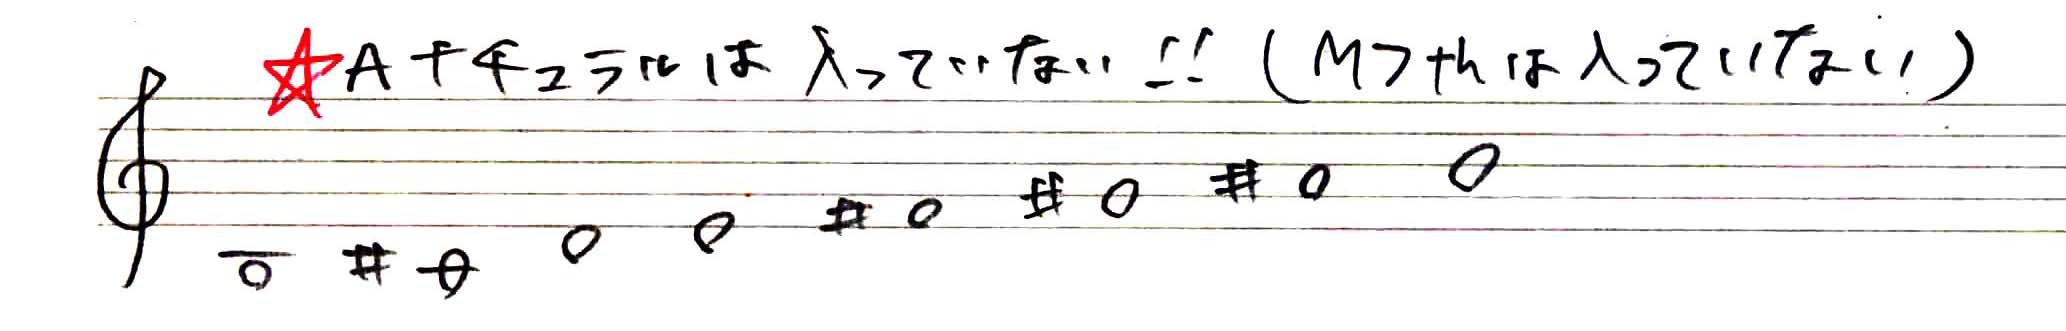 ☆Aナチュラルは入っていない!! (M7thは入っていない)